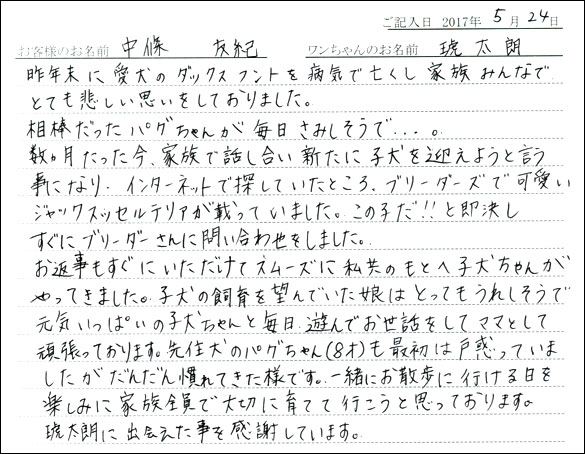 ご記入日 2017年 5月 24日
お客様のお名前 中條 友紀 ワンちゃんのお名前 琥太朗
昨年末に愛犬のダックスフントを病気で亡くし家族みんなで
とても悲しい思いをしておりました。
相棒だったパグちゃんが毎日さみしそうで・・・。
数ヶ月だった今、家族で話し合い新たに子犬を迎えようと言う
事になり、インターネットで探していたところ、ブリーダーズで可愛い
ジャックスッセルテリアが載っていました。この子だ!!と即決し
すぐにブリーダーさんに問い合わせをしました。
お返事もすぐにいただけてスムーズに私共のもとへ子犬ちゃんが
やってきました。子犬の飼育を望んでいた娘はとってもうれしそうで
元気いっぱいの子犬ちゃんと毎日遊んでお世話をしてママとして
頑張っております。先住犬のパグちゃん(8才)も最初は戸惑っていま
したがだんだん慣れてきた様です。一緒にお散歩に行ける日を
楽しみに家族全員で大切に育てて行こうと思っております。
琥太朗に出会えた事を感謝しています。